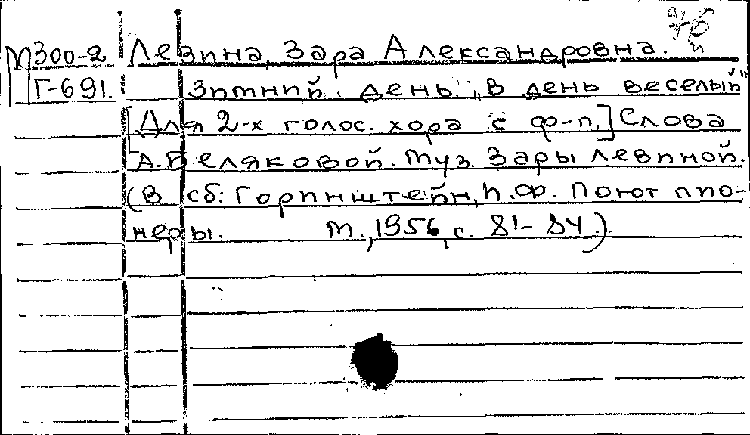 М300-2 Левина, Зара Александровна.
Г-691. Зимний день „В день веселый"
[Для 2-х голос. хора с ф-п.] Слова
А. Беляковой. Муз. Зары Левиной.
(В сб: Горинштейн, И. Ф. Поют пио-
неры. М., 1956, с. 81-84.)